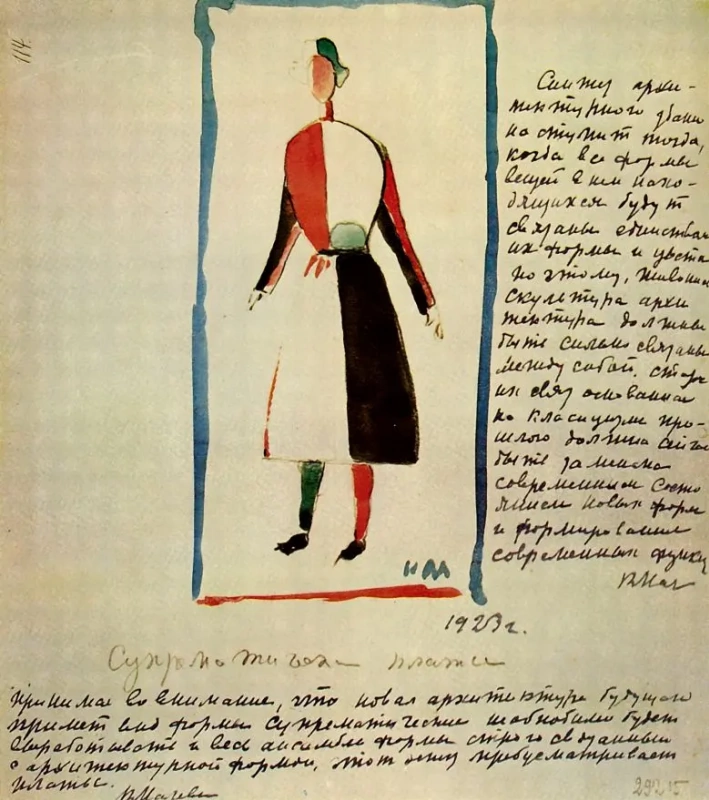 114.
Синтез архи-
тектурного здани
наступит тогда,
когда все формы
вещей в нем нахо-
дящихся будут
связаны единством
их формы и цвета
по этому, живопись
скульптура архи
тектура должны
быте сильно связаны
между собой.
их связ основанная
на класицизме про-
шлого должна сейчас
быте заменена
современным состо
янием новых форм
и формированием
современных функц
КМал
КМ
1923 г.
Супрематическ платье
Принимая во внимание, что новая архитектура будущего
примет вид формы супрематические необходимо будет
выработать и весь ансамбль формы строго связанный
с архитектурной формой, этот эскиз предусматривает
платье.
КМалеви